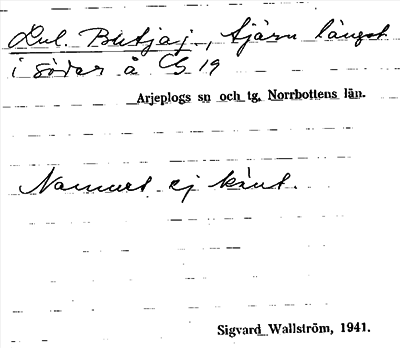 Lul. Butjaj, tjärn längst
i söder å G 19
Arjeplogs sn och tg, Norrbottens län.
Namnet ej känt.
Sigvard Wallström, 1941.